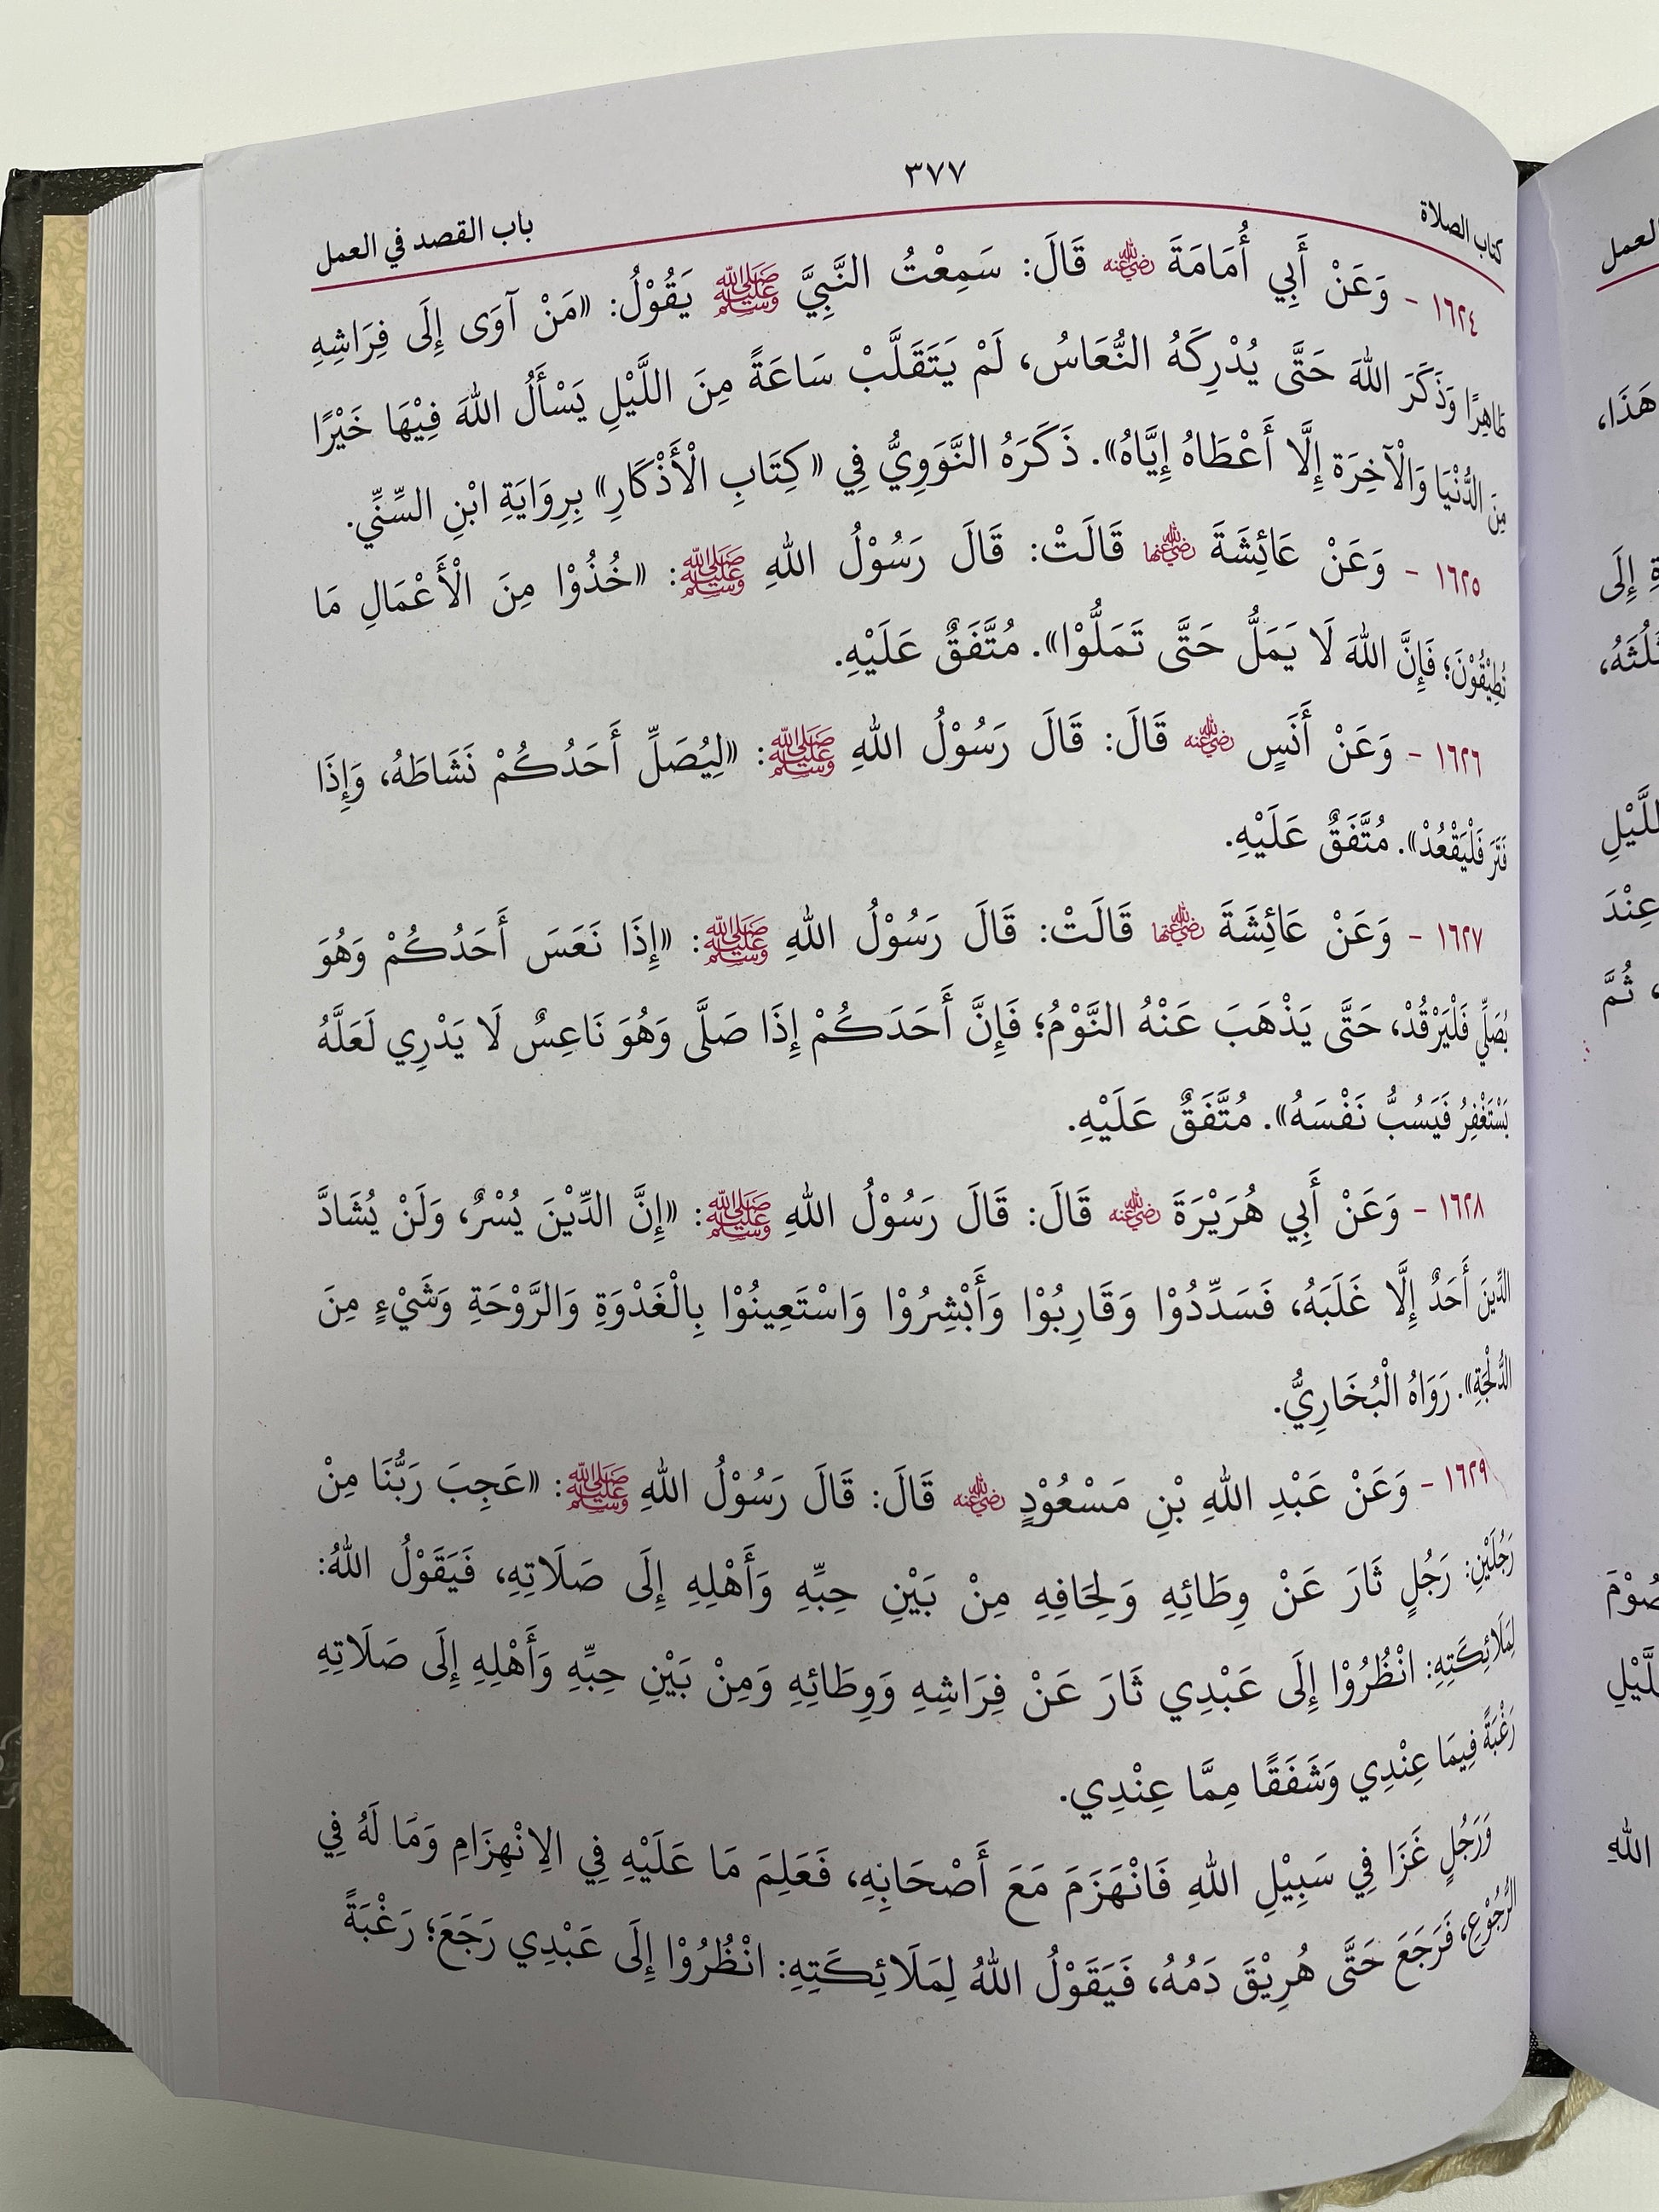 ٣٧٧
كتاب الصلاة
باب القصد في العمل
١٦٢٤ - وَعَنْ أَبِي أُمَامَةَ رضي الله عنه قَالَ: سَمِعْتُ النَّبِيَّ ﷺ يَقُوْلُ: «مَنْ آوَى إِلَى فِرَاشِهِ
طَاهِرًا وَذَكَرَ اللهَ حَتَّى يُدْرِكَهُ النُّعَاسُ، لَمْ يَتَقَلَّبْ سَاعَةً مِنَ اللَّيْلِ يَسْأَلُ اللهَ فِيْهَا خَيْرًا
مِنَ الدُّنْيَا وَالْآخِرَة إِلَّا أَعْطَاهُ إِيَّاهُ». ذَكَرَهُ النَّوَوِيُّ فِي «كِتَابِ الْأَذْكَارِ» بِرِوَايَةِ ابْنِ السِّنِّي.
١٦٢٥ - وَعَنْ عَائِشَةَ رضي الله عنها قَالَتْ: قَالَ رَسُوْلُ اللهِ ﷺ: «خُذُوْا مِنَ الْأَعْمَالِ مَا
تُطِيْقُوْنَ؛ فَإِنَّ اللهَ لَا يَمَلُّ حَتَّى تَمَلُّوْا». مُتَّفَقٌ عَلَيْهِ.
١٦٢٦ - وَعَنْ أَنَسٍ رضي الله عنه قَالَ: قَالَ رَسُوْلُ اللهِ ﷺ: «لِيُصَلِّ أَحَدُكُمْ نَشَاطَهُ، وَإِذَا
فَتَرَ فَلْيَقْعُدْ». مُتَّفَقٌ عَلَيْهِ.
١٦٢٧ - وَعَنْ عَائِشَةَ رضي الله عنها قَالَتْ: قَالَ رَسُوْلُ اللهِ ﷺ: «إِذَا نَعَسَ أَحَدُكُمْ وَهُوَ
يُصَلِّي فَلْيَرْقُدْ، حَتَّى يَذْهَبَ عَنْهُ النَّوْمُ؛ فَإِنَّ أَحَدَكُمْ إِذَا صَلَّى وَهُوَ نَاعِسٌ لَا يَدْرِي لَعَلَّهُ
يَسْتَغْفِرُ فَيَسُبُّ نَفْسَهُ». مُتَّفَقٌ عَلَيْهِ.
١٦٢٨ - وَعَنْ أَبِي هُرَيْرَةَ رضي الله عنه قَالَ: قَالَ رَسُوْلُ اللهِ ﷺ: «إِنَّ الدِّيْنَ يُسْرٌ، وَلَنْ يُشَادَّ
الدِّيْنَ أَحَدٌ إِلَّا غَلَبَهُ، فَسَدِّدُوْا وَقَارِبُوْا وَأَبْشِرُوْا وَاسْتَعِينُوْا بِالْغَدْوَةِ وَالرَّوْحَةِ وَشَيْءٍ مِنَ
الدُّلْجَةِ». رَوَاهُ الْبُخَارِيُّ.
١٦٢٩ - وَعَنْ عَبْدِ اللهِ بْنِ مَسْعُوْدٍ رضي الله عنه قَالَ: قَالَ رَسُوْلُ اللهِ ﷺ: «عَجِبَ رَبُّنَا مِنْ
رَجُلَيْنِ: رَجُلٍ ثَارَ عَنْ وِطَائِهِ وَلِحَافِهِ مِنْ بَيْنِ حِبِّهِ وَأَهْلِهِ إِلَى صَلَاتِهِ، فَيَقَوْلُ اللهُ:
لِمَلَائِكَتِهِ: انْظُرُوْا إِلَى عَبْدِي ثَارَ عَنْ فِرَاشِهِ وَوِطَائِهِ وَمِنْ بَيْنِ حِبِّهِ وَأَهْلِهِ إِلَى صَلَاتِهِ
رَغْبَةً فِيمَا عِنْدِي وَشَفَقًا مِمَّا عِنْدِي.
وَرَجُلٍ غَزَا فِي سَبِيْلِ اللهِ فَانْهَزَمَ مَعَ أَصْحَابِهِ، فَعَلِمَ مَا عَلَيْهِ فِي الِانْهِزَامِ وَمَا لَهُ فِي
الرُّجُوْعِ، فَرَجَعَ حَتَّى هُرِيْقَ دَمُهُ، فَيَقَوْلُ اللهُ لِمَلَائِكَتِهِ: انْظُرُوْا إِلَى عَبْدِي رَجَعَ؛ رَغْبَةً